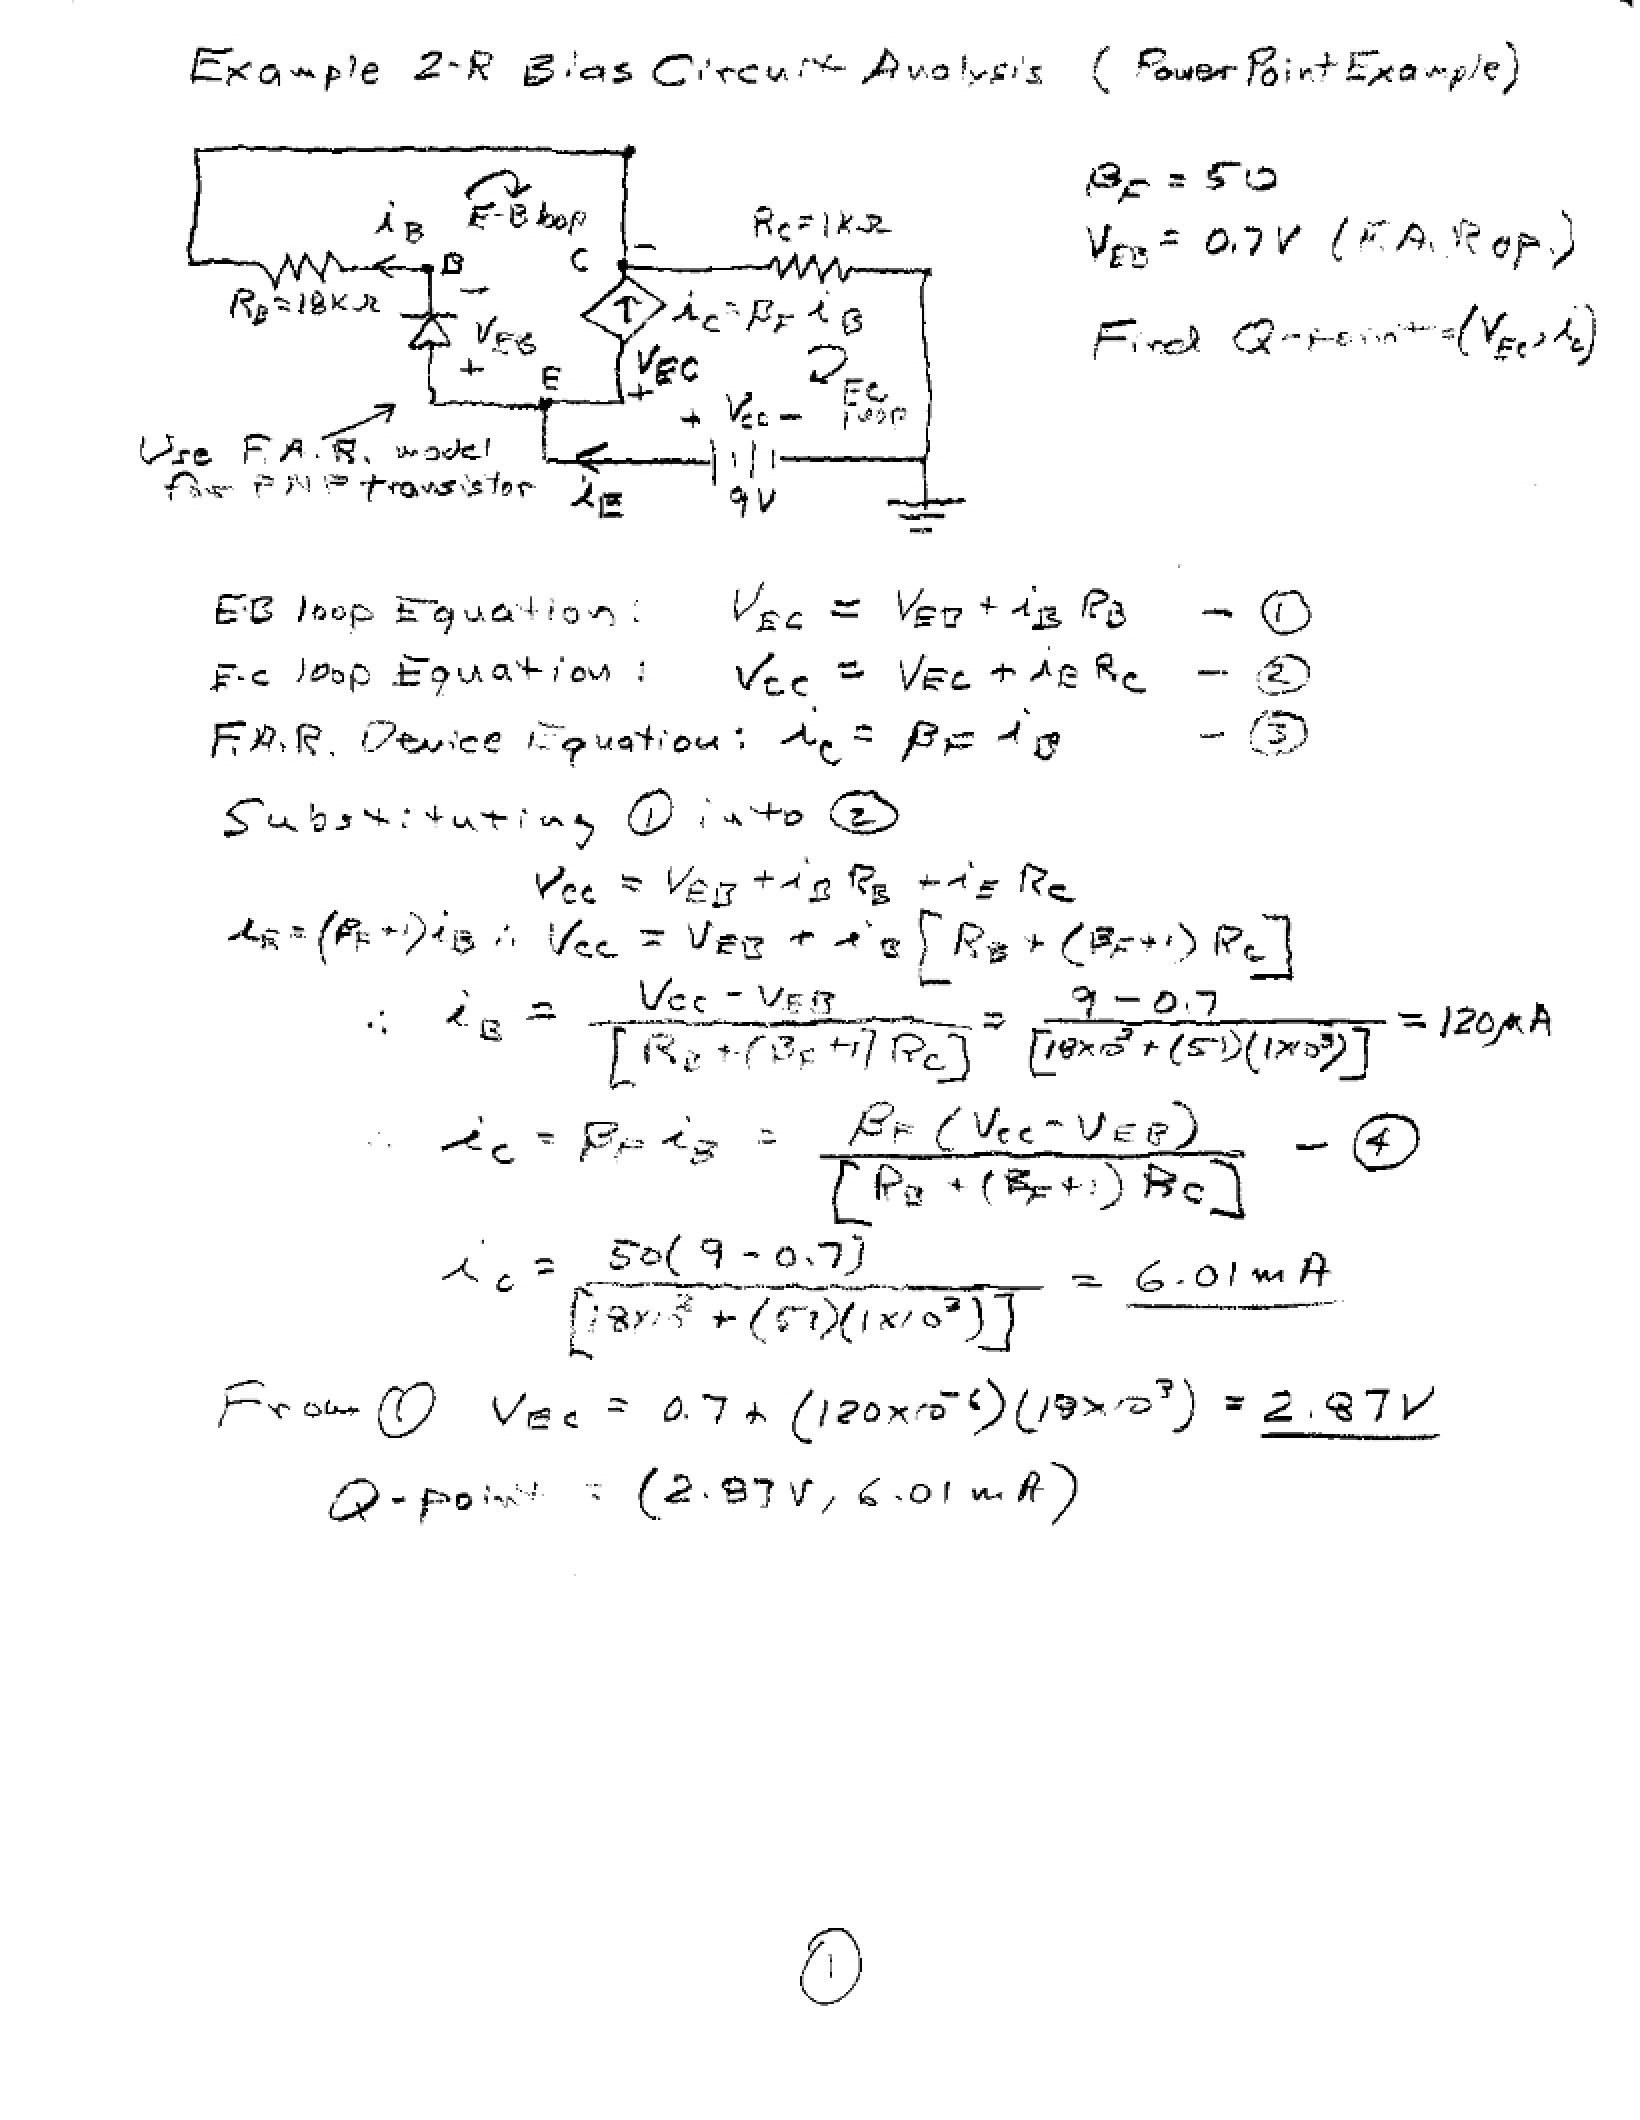 Example 2-R Bias Circuit Analysis (PowerPoint Example)
β_F = 50
i_B
E-B loop
R_C = 1KΩ
V_EB = 0.7V (F.A.R op.)
B
C
−
R_B = 18KΩ
−
i_C = β_F i_B
Find Q-point = (V_EC, i_C)
V_EB
+
E
V_EC
+
EC loop
Use F.A.R. model
+ V_CC −
for PNP transistor
i_E
9V
E-B loop Equation: V_EC = V_EB + i_B R_B − ①
E-C loop Equation: V_CC = V_EC + i_E R_C − ②
F.A.R. Device Equation: i_C = β_F i_B − ③
Substituting ① into ②
V_CC = V_EB + i_B R_B + i_E R_C
i_E = (β_F + 1) i_B ∴ V_CC = V_EB + i_B [R_B + (β_F + 1) R_C]
∴ i_B = (V_CC − V_EB) / [R_B + (β_F + 1) R_C] = (9 − 0.7) / [18×10³ + (51)(1×10³)] = 120μA
∴ i_C = β_F i_B = β_F (V_CC − V_EB) / [R_B + (β_F + 1) R_C] − ④
i_C = 50(9 − 0.7) / [18×10³ + (51)(1×10³)] = 6.01mA
From ① V_EC = 0.7 + (120×10⁻⁶)(18×10³) = 2.87V
Q-point = (2.87V, 6.01mA)
①